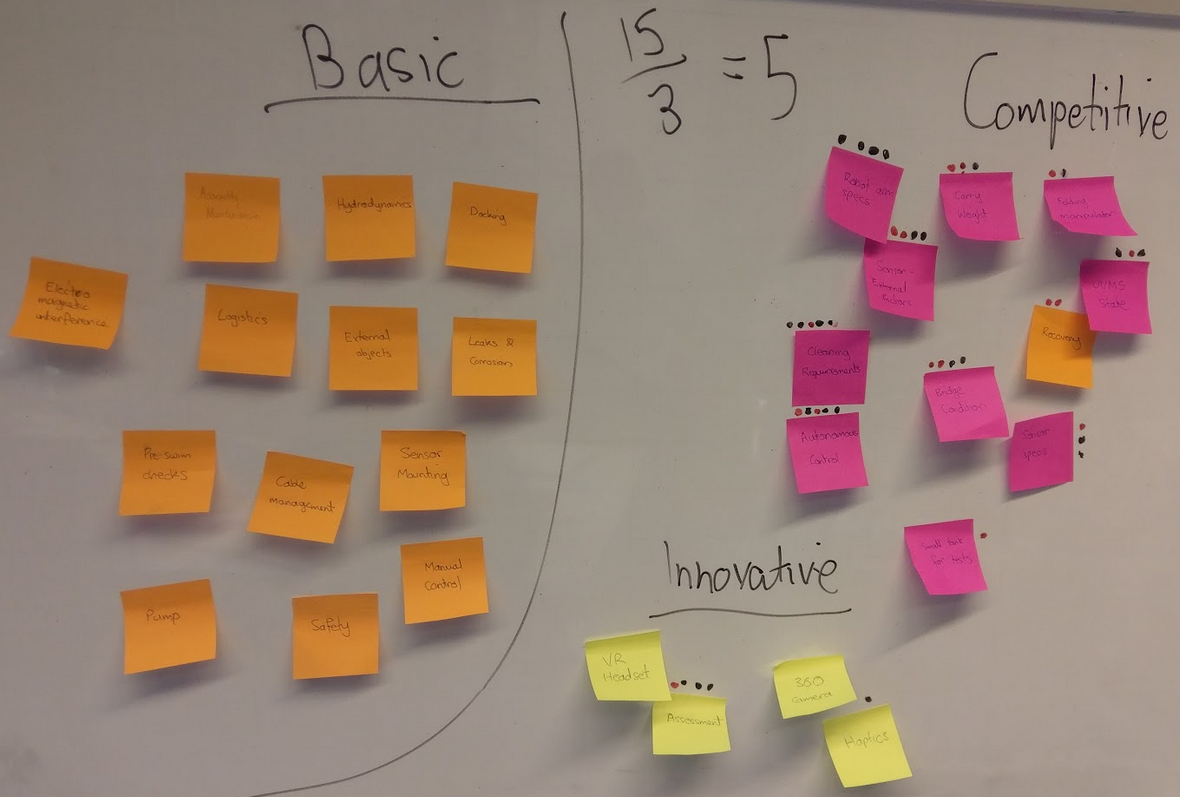 Basic
15
3
= 5
Competitive
Hydrodynamics
Docking
Electro
magnetic
interference
Logistics
External
objects
Leaks &
Corrosion
Pre-swim
checks
Cable
management
Sensor
Mounting
Manual
Control
Pump
Safety
Robot arm
specs
Carry
Weight
Folding
manipulator
Sensor -
External
factors
UI/MS
State
Recovery
Cleaning
Requirements
Bridge
Condition
Autonomous
Control
Sensor
specs
Small tank
for tests
Innovative
VR
Headset
Assessment
360
camera
Haptics